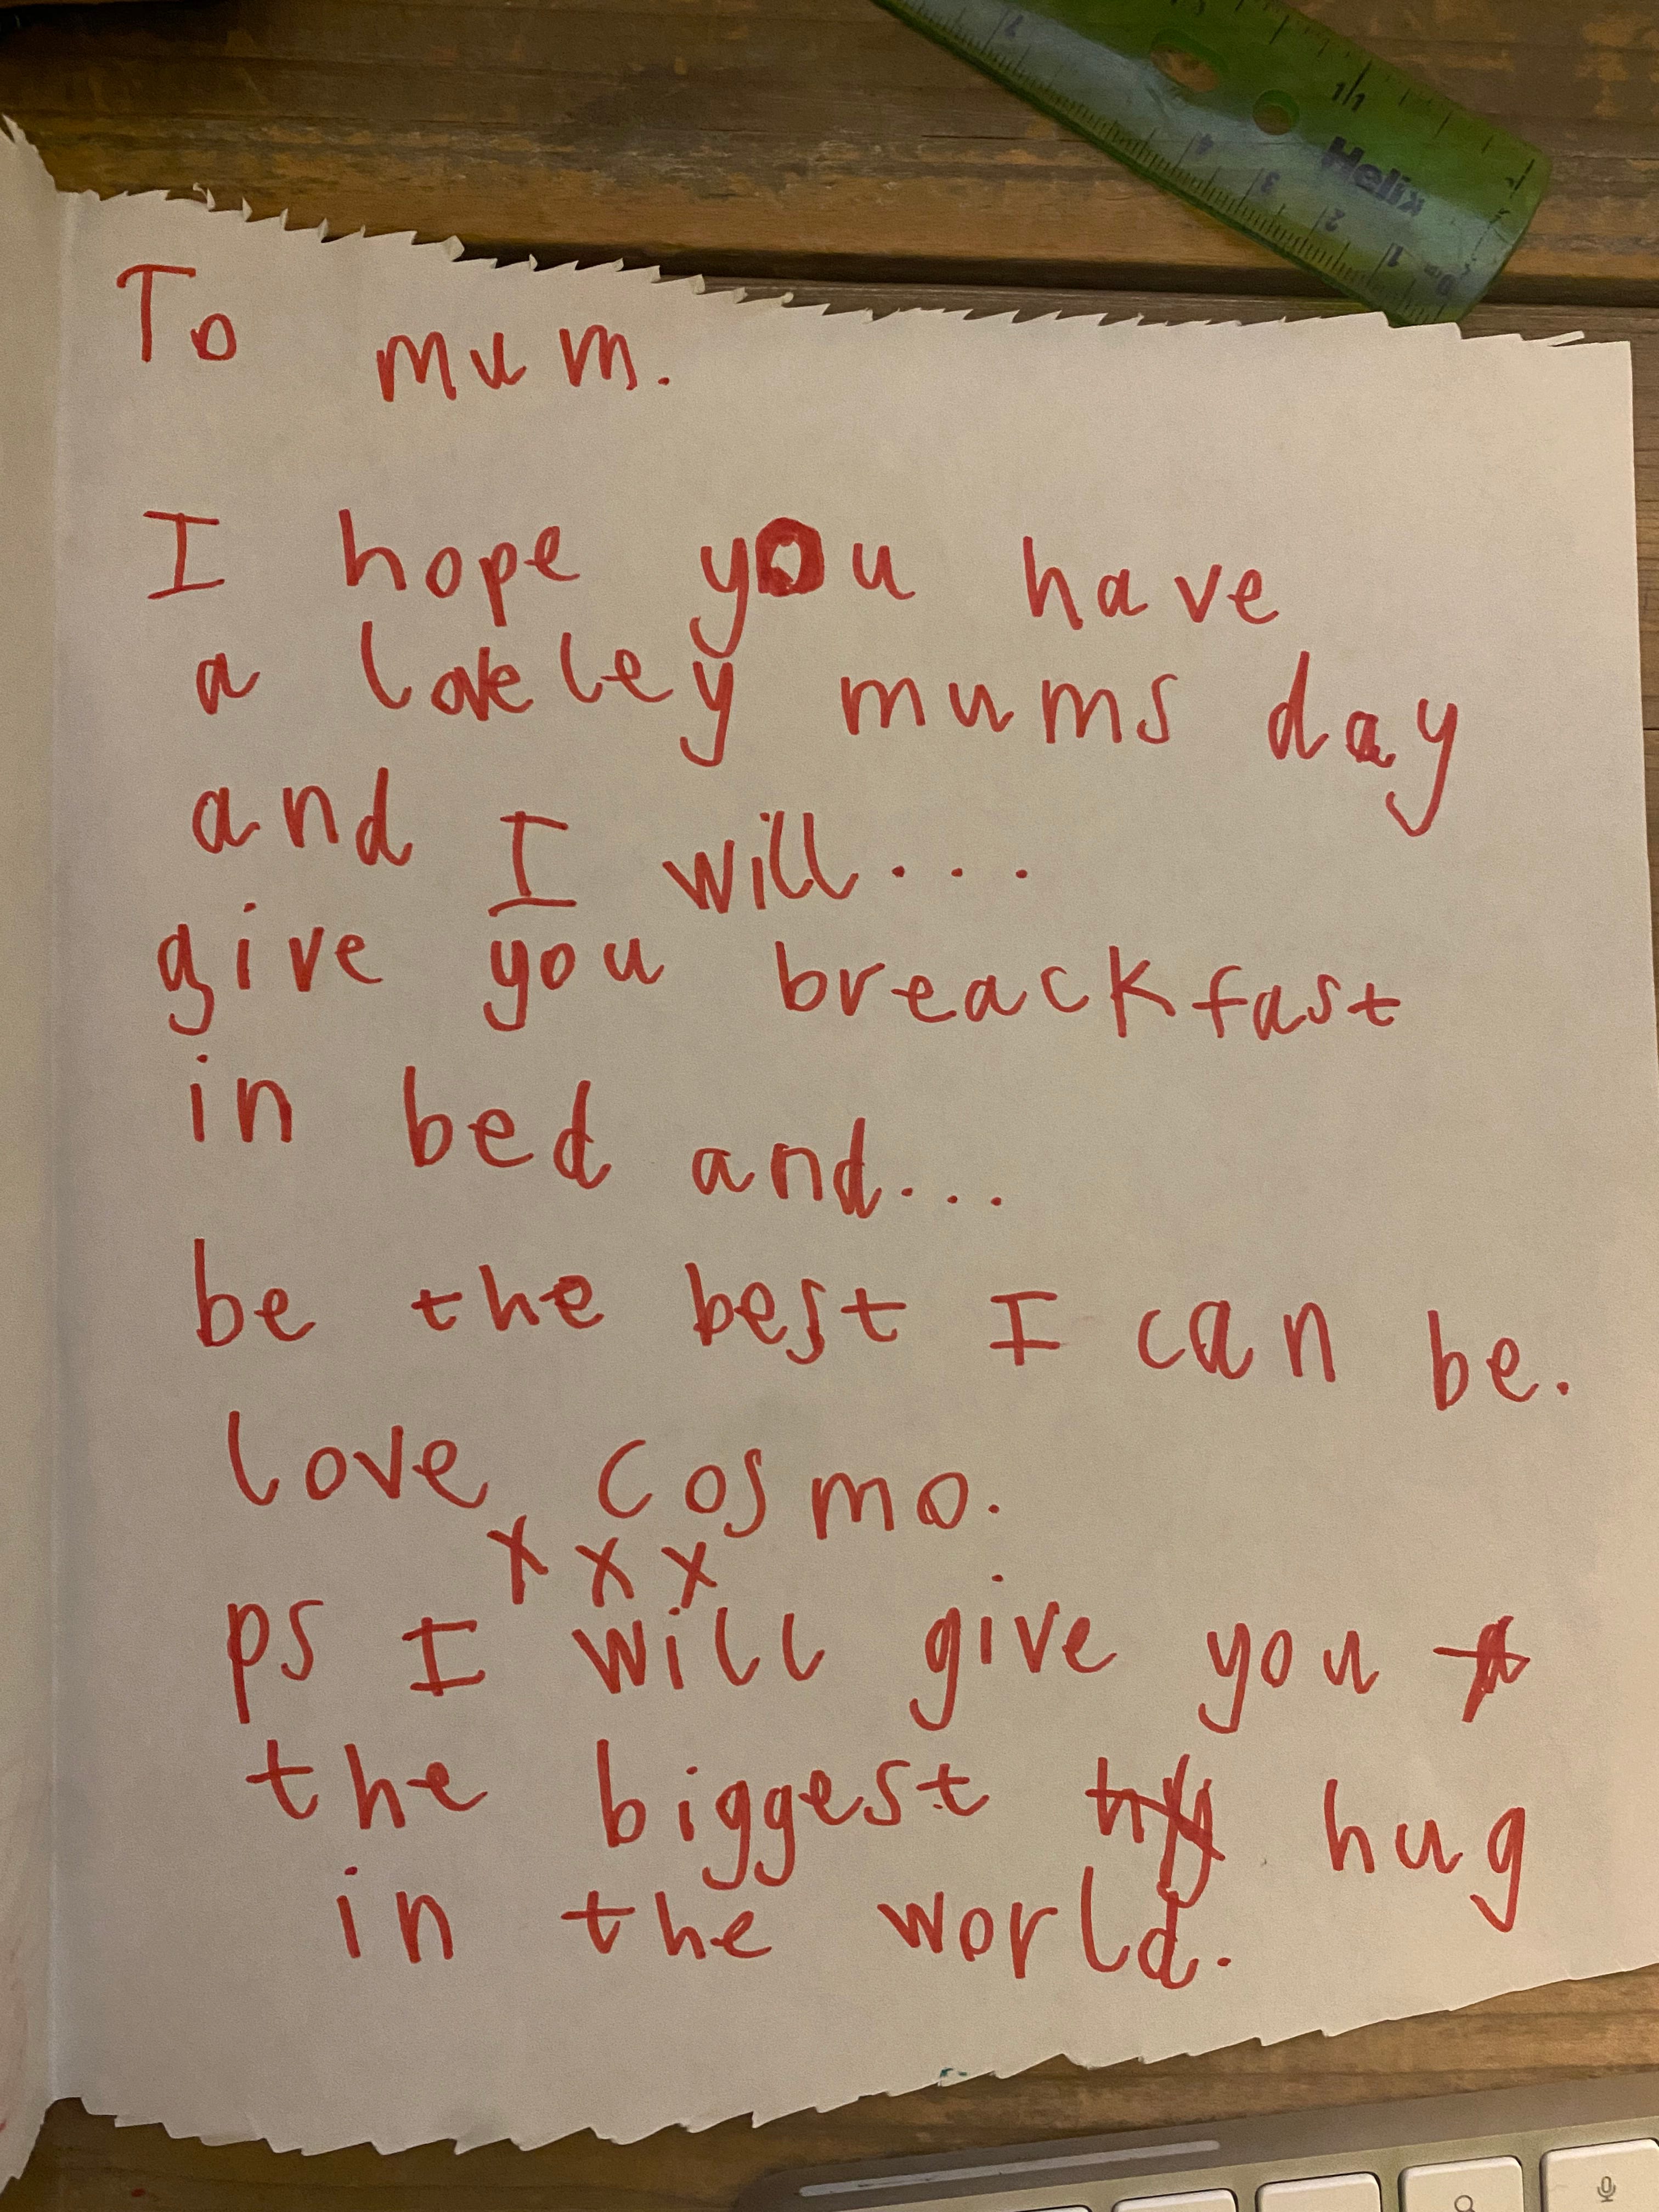 Helix
1 2 3 4
11
To mum.
I hope you have
a loveley mums day
and I will...
give you breackfast
in bed and...
be the best I can be.
love cosmo.
x x x
ps I will give you
the biggest hug
in the world.